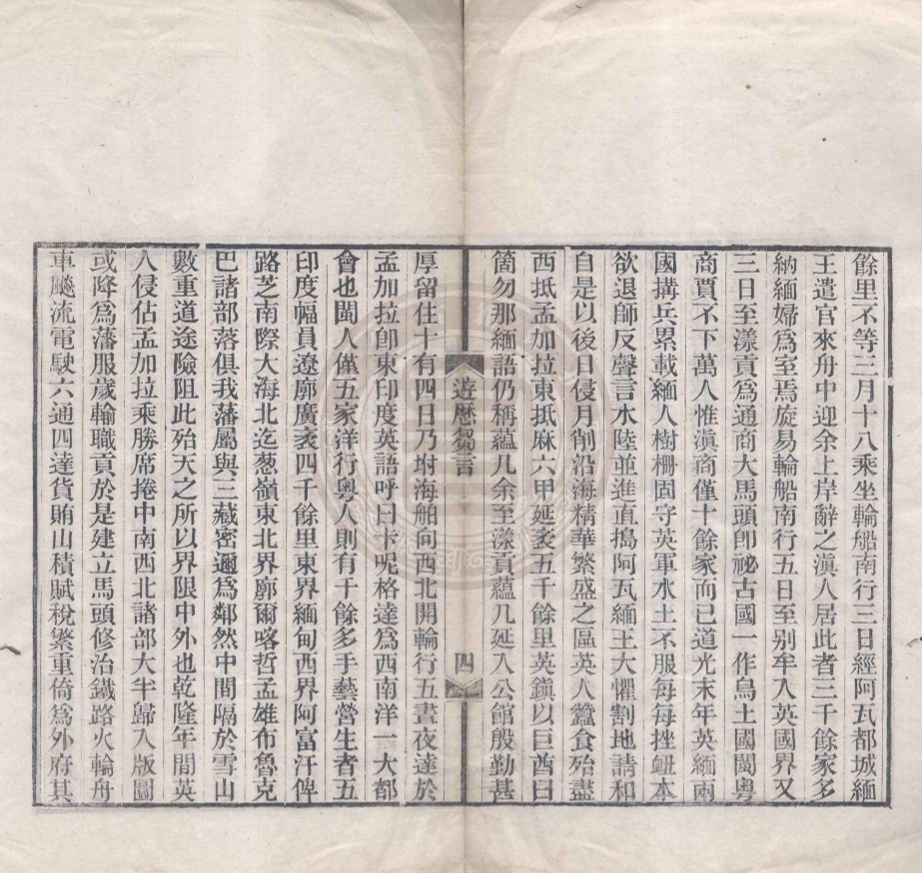 餘里不等三月十八乘坐輪船南行三日經阿瓦都城緬
王遣官來舟中迎余上岸辭之滇人居此者三千餘家多
納緬婦爲室焉旋易輪船南行五日至别牟入英國界又
三日至漾貢爲通商大馬頭卽祕古國一作烏土國閩粵
商賈不下萬人惟滇商僅十餘家而已道光末年英緬兩
國搆兵累載緬人樹柵固守英軍水土不服每每挫衂本
欲退師反聲言水陸並進直搗阿瓦緬王大懼割地請和
自是以後日侵月削沿海精華繁盛之區英人蠶食殆盡
西抵孟加拉東抵麻六甲延袤五千餘里英鎭以巨酋曰
箇勿那緬語仍稱蘊几余至漾貢蘊几延入公館殷勤甚
遊歷芻言
四
厚留住十有四日乃坿海舶向西北開輪行五晝夜達於
孟加拉卽東印度英語呼曰卡呢格達爲西南洋一大都
會也閩人僅五家洋行粵人則有千餘多手藝營生者五
印度幅員遼廓廣袤四千餘里東界緬甸西界阿富汗俾
路芝南際大海北迄葱嶺東北界廓爾喀哲孟雄布魯克
巴諸部落俱我藩屬與三藏密邇爲鄰然中間隔於雪山
數重道途險阻此殆天之所以界限中外也乾隆年間英
人侵佔孟加拉乘勝席捲中南西北諸部大半歸入版圖
或降爲藩服歲輸職貢於是建立馬頭修治鐵路火輪舟
車飈流電駛六通四達貨賄山積賦稅繁重倚爲外府其